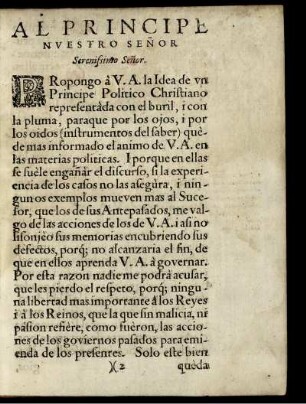 AL PRINCIPE
NVESTRO SEÑOR
Serenissimo Señor.
PRopongo à V. A. la Idea de vn
Principe Politico Christiano
representàda con el buril, i con
la pluma, paraque por los ojos, i por
los oidos (instrumentos del saber) què-
de mas informado el animo de V. A. en
las materias politicas. I porque en ellas
se suèle engañàr el discurso, si la experi-
encia de los casos no las asegùra, i nin-
gunos exemplos mueven mas al Suce-
sor, que los de sus Antepasàdos, me val-
go de las acciones de los de V. A. i asi no
lisonjèo sus memorias encubriendo sus
defectos, porq; no alcanzaria el fin, de
que en ellos aprenda V. A. à governar.
Por esta razon nadie me podrà acusar,
que les pierdo el respeto, porq; ningu-
na libertad mas importante à los Reyes
i à los Reinos, que la que sin malicia, ni
pasion refière, como fuèron, las accio-
nes de los goviernos pasados para emi-
enda de los presentes. Solo este bien
)(2 quèda